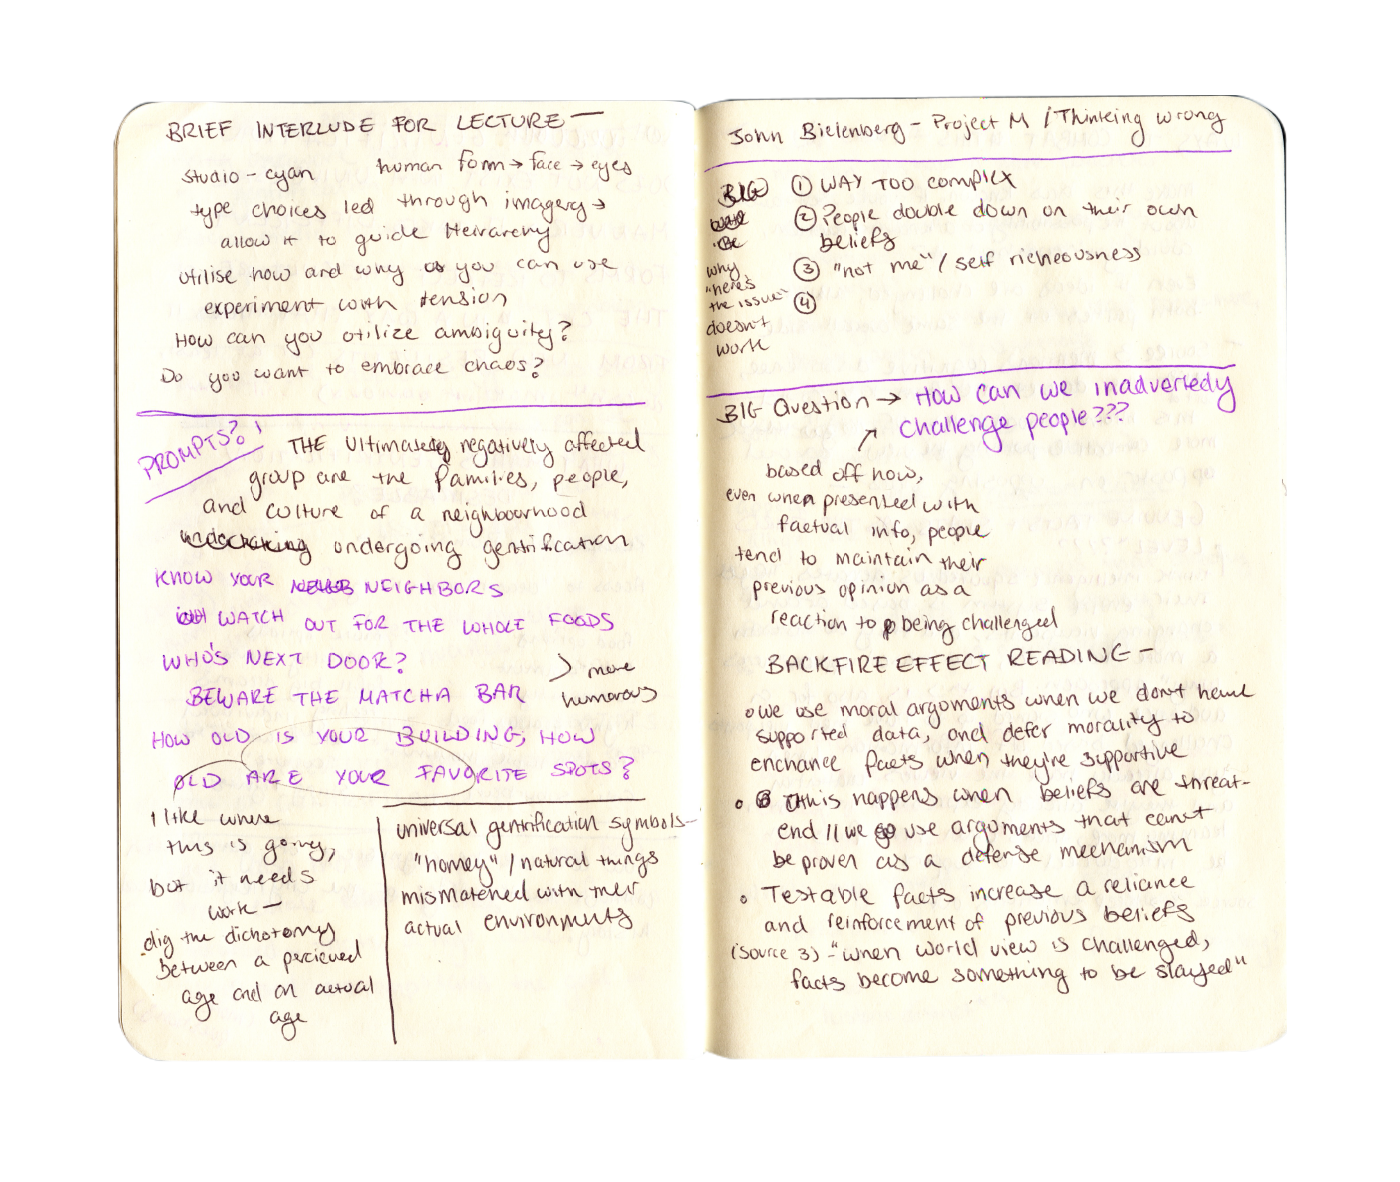 BRIEF INTERLUDE FOR LECTURE —
studio - cyan human form → face → eyes
type choices led through imagery →
allow it to guide Heirarchy
utilise how and why as you can use
experiment with tension
How can you utilize ambiguity?
Do you want to embrace chaos?
PROMPTS?!
THE Ultimately negatively affected
group are the families, people,
and culture of a neighbourhood
undergoing gentrification
KNOW YOUR NEIGHBORS
WATCH OUT FOR THE WHOLE FOODS
WHO'S NEXT DOOR?
BEWARE THE MATCHA BAR
more
humorous
HOW OLD IS YOUR BUILDING, HOW
OLD ARE YOUR FAVORITE SPOTS?
I like where
this is going,
but it needs
work —
dig the dichotomy
between a percieved
age and an actual
age
universal gentrification symbols—
"homey" / natural things
mismatched with their
actual environments
John Bielenberg - Project M / Thinking wrong
BIG
why
"here's
the issue"
doesn't
work
① WAY TOO complex
② People double down on their own
beliefs
③ "not me" / self richeousness
④
BIG Question → How can we inadvertedy
challenge people???
↗
based off how,
even when presented with
factual info, people
tend to maintain their
previous opinion as a
reaction to being challenged
BACKFIRE EFFECT READING —
• we use moral arguments when we don't have
supported data, and defer morality to
enchance facts when they're supportive
• this happens when beliefs are threat-
end // we use arguments that cannot
be proven as a defense mechanism
• Testable facts increase a reliance
and reinforcement of previous beliefs
(source 3) - "when world view is challenged,
facts become something to be slayed"